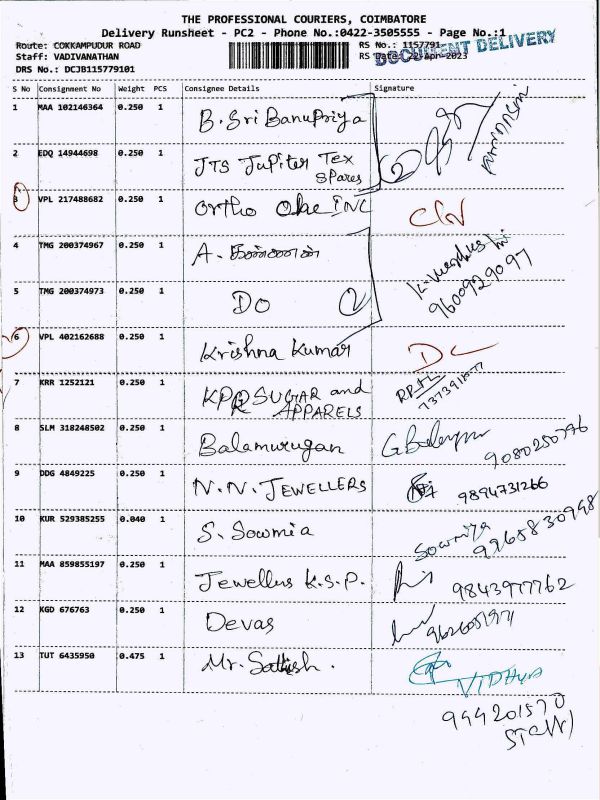 THE PROFESSIONAL COURIERS, COIMBATORE
Delivery Runsheet - PC2 - Phone No.:0422-3505555 - Page No.:1
Route: COKKAMPUDUR ROAD RS No.: 1157791
Staff: VADIVANATHAN RS Date: 22-Apr-2023
DOCUMENT DELIVERY
DRS No.: DCJB115779101
S No Consignment No Weight PCS Consignee Details Signature
1 MAA 102146364 0.250 1 B. Sri Banupriya
2 EDQ 14944698 0.250 1 JTS Jupiter Tex Spares 2
3 VPL 217488682 0.250 1 Ortho One INC
4 TMG 200374967 0.250 1 A. கண்ணன்
9600929097
5 TMG 200374973 0.250 1 DO 2
6 VPL 402162688 0.250 1 Krishna Kumar DL
7 KRR 1252121 0.250 1 KPR SUGAR and APPARELS
8 SLM 318248502 0.250 1 Balamurugan 9080250796
9 DDG 4849225 0.250 1 N.N. JEWELLERS 9894731266
10 KUR 529385255 0.040 1 S. Sowmia Sowmiya 9965830998
11 MAA 859855197 0.250 1 Jewellus K.S.P. 9843977762
12 KGD 676763 0.250 1 Devas
13 TUT 6435950 0.475 1 Mr. Sathish. VIDHYA
944201570
Staff)